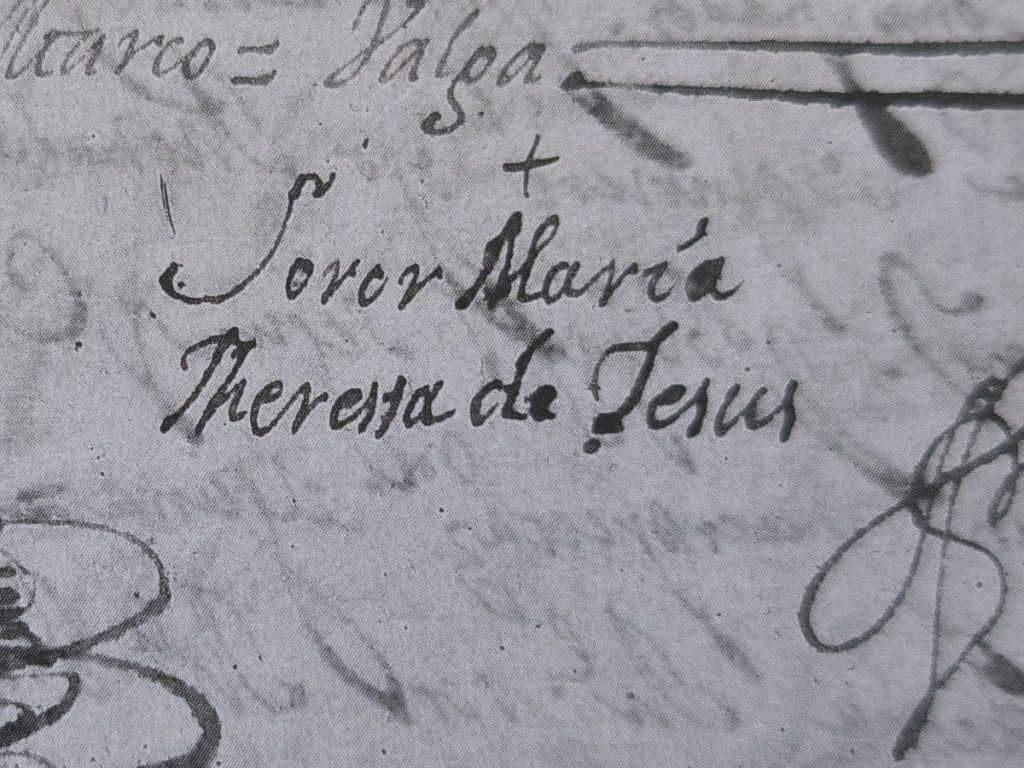 Marco = Valga
+
Soror María
Theressa de Jesus